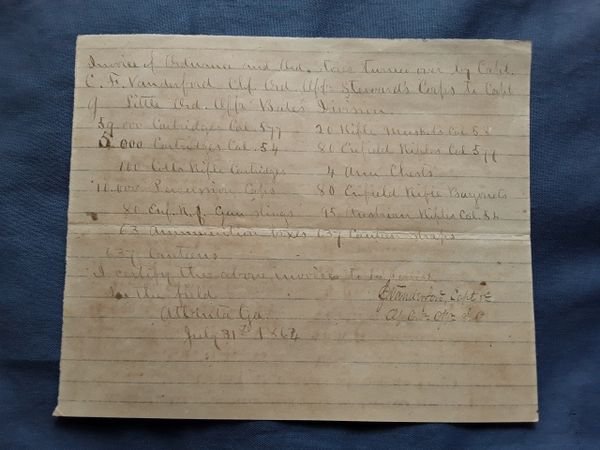 Invoice of Ordnance and Ord. Stores turned over by Capt.
C. F. Vanderford Chf Ord Offr Stewards Corps to Capt
Little Ord. Offr Bates Division
000 Cartridges Cal. 577 20 Rifle Muskets Cal 58
5 000 Cartridges Cal. 54 80 Enfield Rifles Cal 577
100 Colts Rifle Cartridges 4 Arm Chests
10.000 Percussion Caps 80 Enfield Rifle Bayonets
80 Enf. R. Gun Slings 95 Austrian Rifles Cal. 54
63 Ammunition Boxes 637 Canteen Straps
637 Canteens
I certify the above invoice to be correct
In the field
Atlanta Ga.
July 31st 1864
Vanderford, Capt